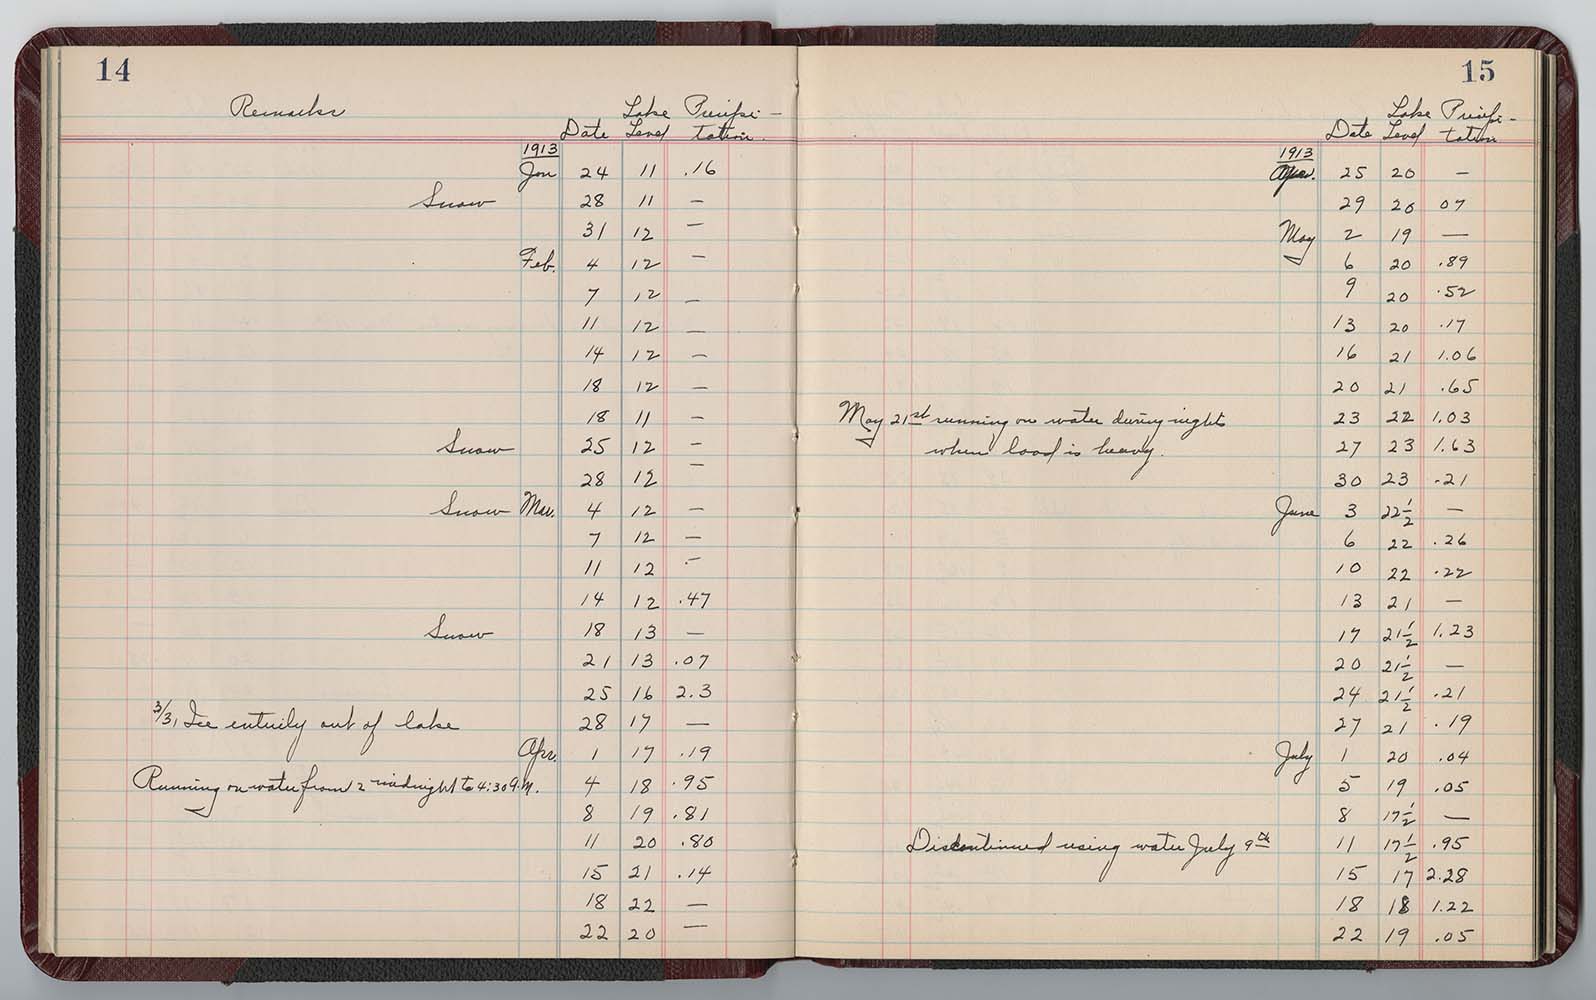 14
Remarks
Date Lake Level Precipi-tation
1913
Jan 24 11 .16
Snow 28 11 —
31 12 —
Feb. 4 12 —
7 12 —
11 12 —
14 12 —
18 12 —
18 11 —
Snow 25 12 —
28 12 —
Snow Mar. 4 12 —
7 12 —
11 12 —
14 12 .47
Snow 18 13 —
21 13 .07
25 16 2.3
3/31 Ice entirily out of lake 28 17 —
Apr. 1 17 .19
Running on water from 2 midnight to 4:30 A.M. 4 18 .95
8 19 .81
11 20 .80
15 21 .14
18 22 —
22 20 —
15
Date Lake Level Precipi-tation
1913
Apr. 25 20 —
29 20 07
May 2 19 —
6 20 .89
9 20 .52
13 20 .17
16 21 1.06
20 21 .65
May 21st running on water during nights 23 22 1.03
when load is heavy. 27 23 1.63
30 23 .21
June 3 22 1/2 —
6 22 .26
10 22 .22
13 21 —
17 21 1/2 1.23
20 21 1/2 —
24 21 1/2 .21
27 21 .19
July 1 20 .04
5 19 .05
8 17 1/2 —
Discontinued using water July 9th 11 17 1/2 .95
15 17 2.28
18 18 1.22
22 19 .05